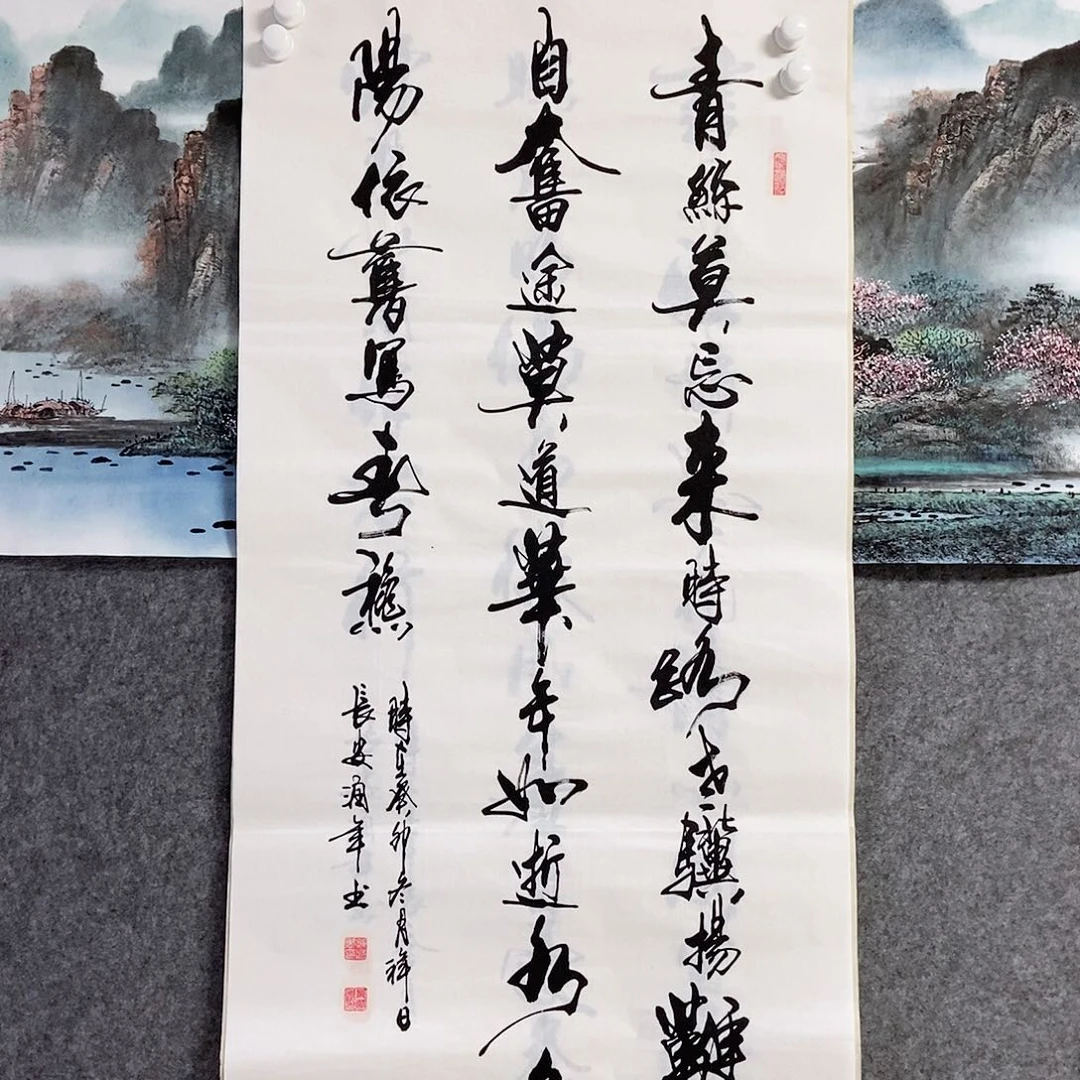 青絲莫忘来時路老驥揚
自奮途莫道華年如逝水
陽依舊寫春穐
時在癸卯冬月祥日
長安年书